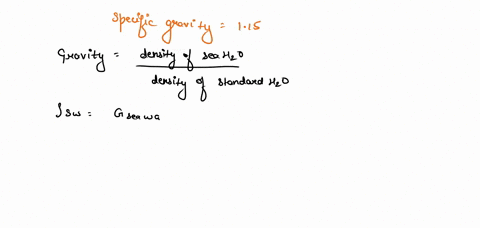 Specific gravity = 1.15
Gravity = density of sea H2O
density of standard H2O
ʃsw = G sea wa